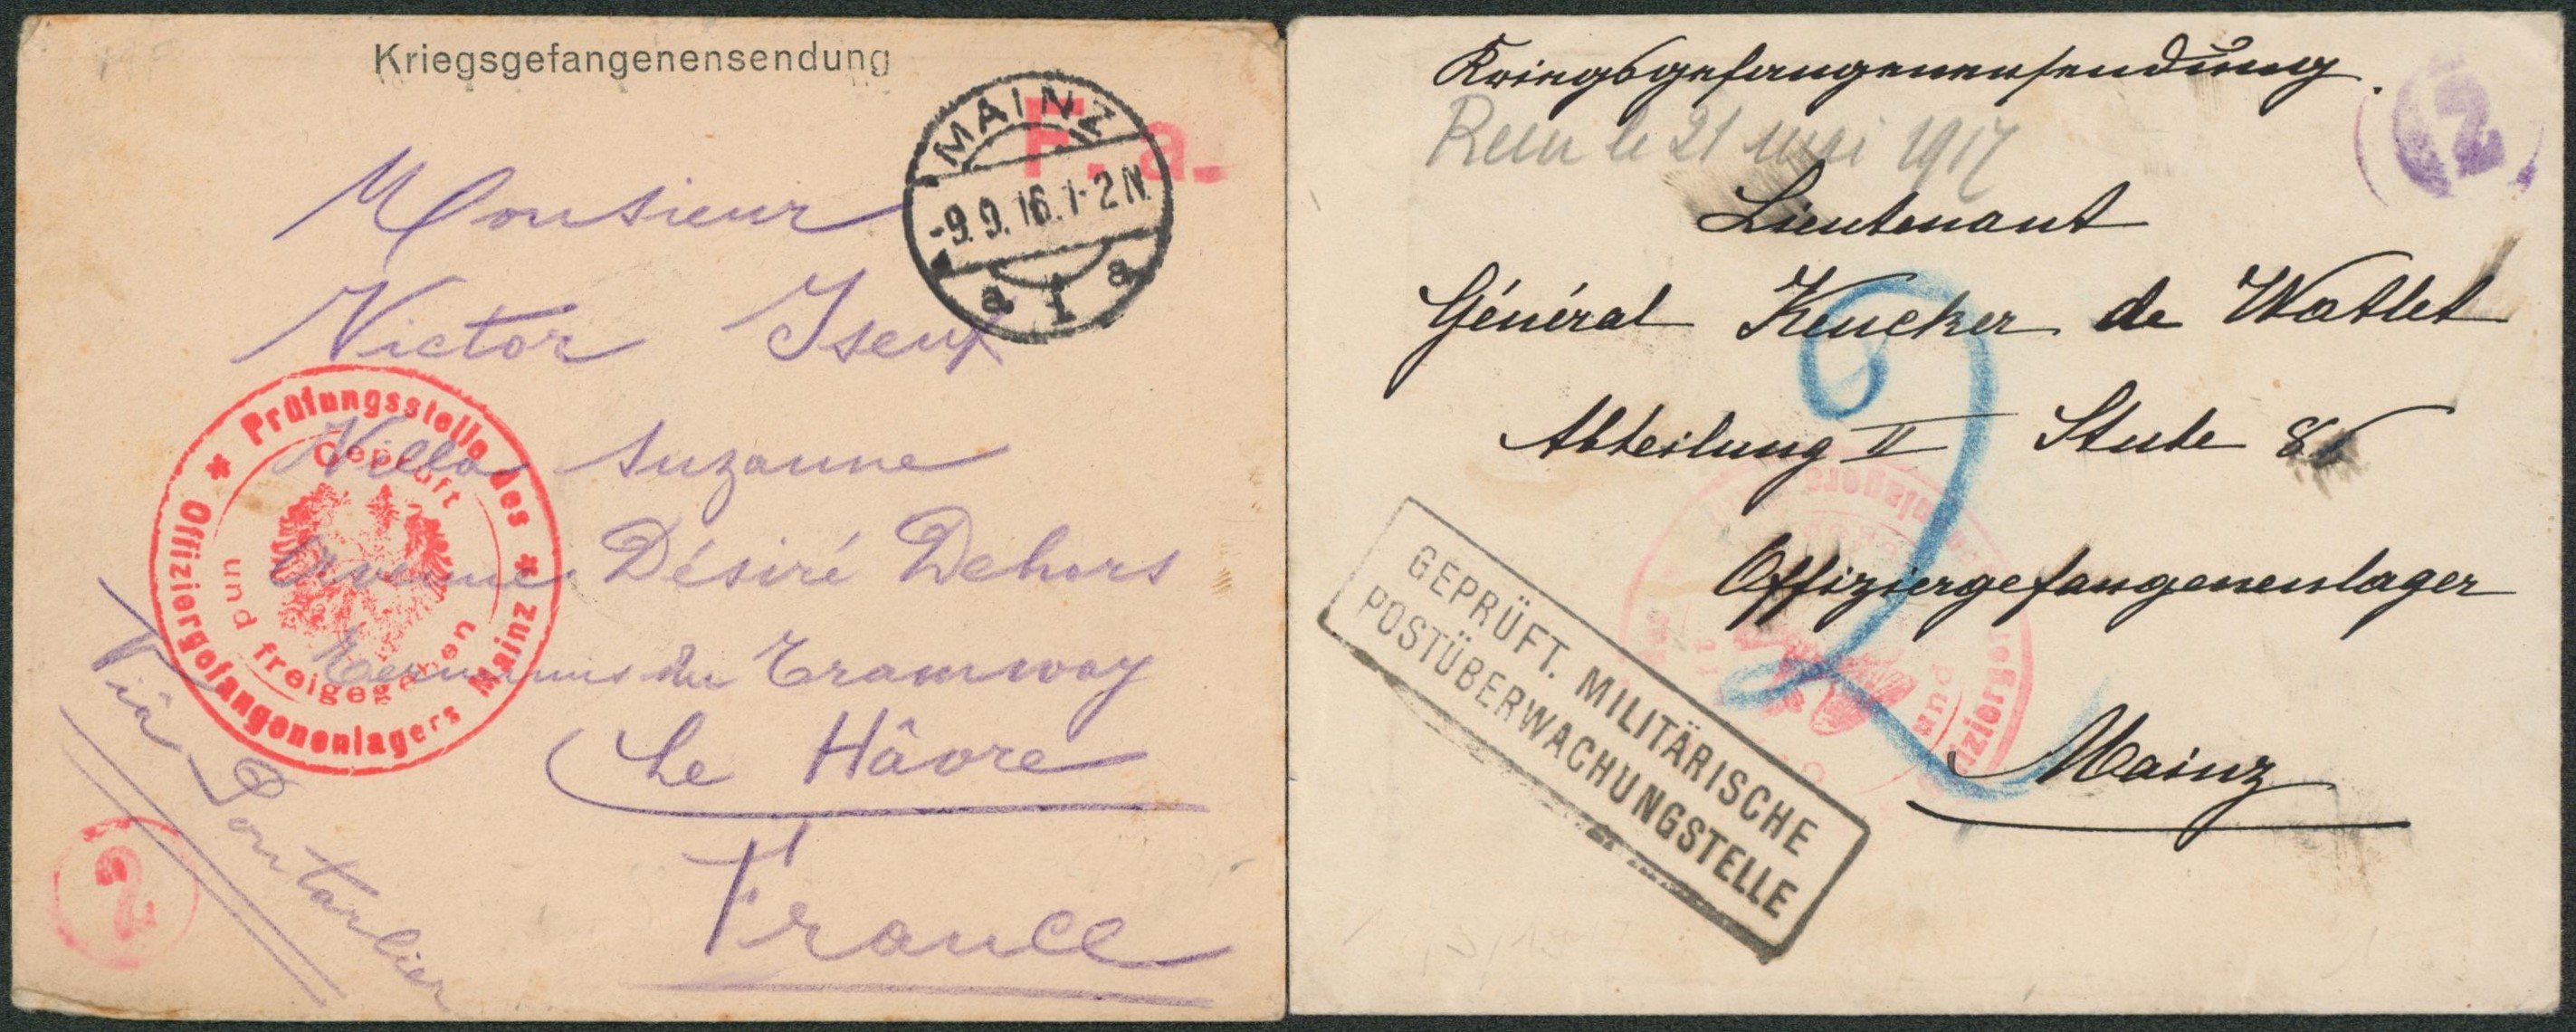 Kriegsgefangenensendung
F. a.
MAINZ
-9.9.16.1-2N.
a 1 a
Monsieur
Victor Iseux
Villa Suzanne
Désiré Dehors
Terminus du Tramway
Le Hâvre
France
Via Pontarlier
* Prüfungsstelle des * Offiziergefangenenlagers Mainz
Geprüft und freigegeben
2
Kriegsgefangenensendung.
2
Reçu le 21 mai 1917
Lieutenant
Général Keucker de Watlet
Abteilung II Stube 86
Offiziergefangenenlager
Mainz
2
GEPRÜFT. MILITÄRISCHE
POSTÜBERWACHUNGSTELLE